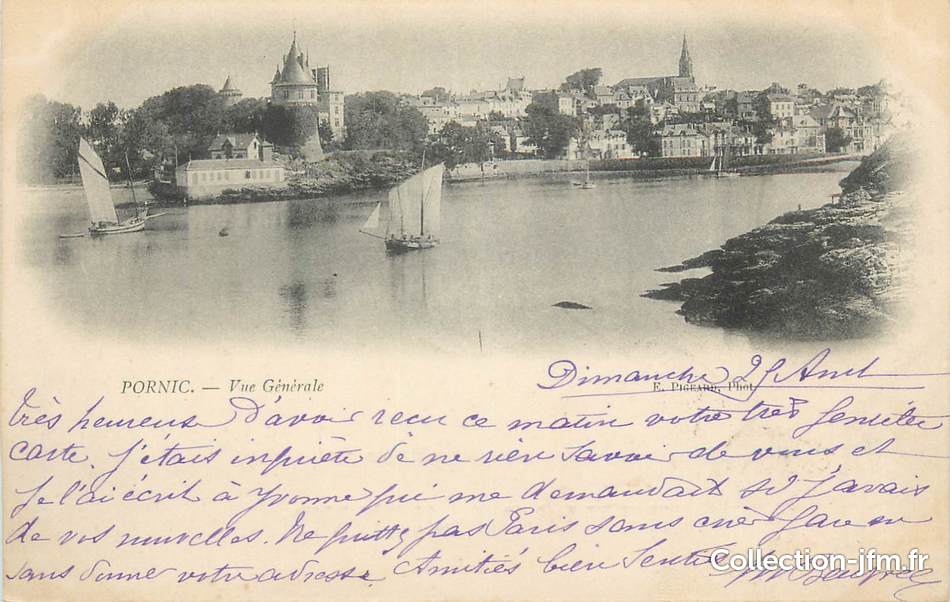 PORNIC. — Vue Générale
E. PIGEARD, Phot
Dimanche 25 Aout
très heureuse d'avoir recu ce matin votre très Gentille
carte. J'étais inquiète de ne rien savoir de vous et
je l'ai écrit à Yvonne qui me demandait si j'avais
de vos nouvelles. Ne quittez pas Paris sans crier gare
sans donner votre adresse. Amitiés bien
Collection-jfm.fr